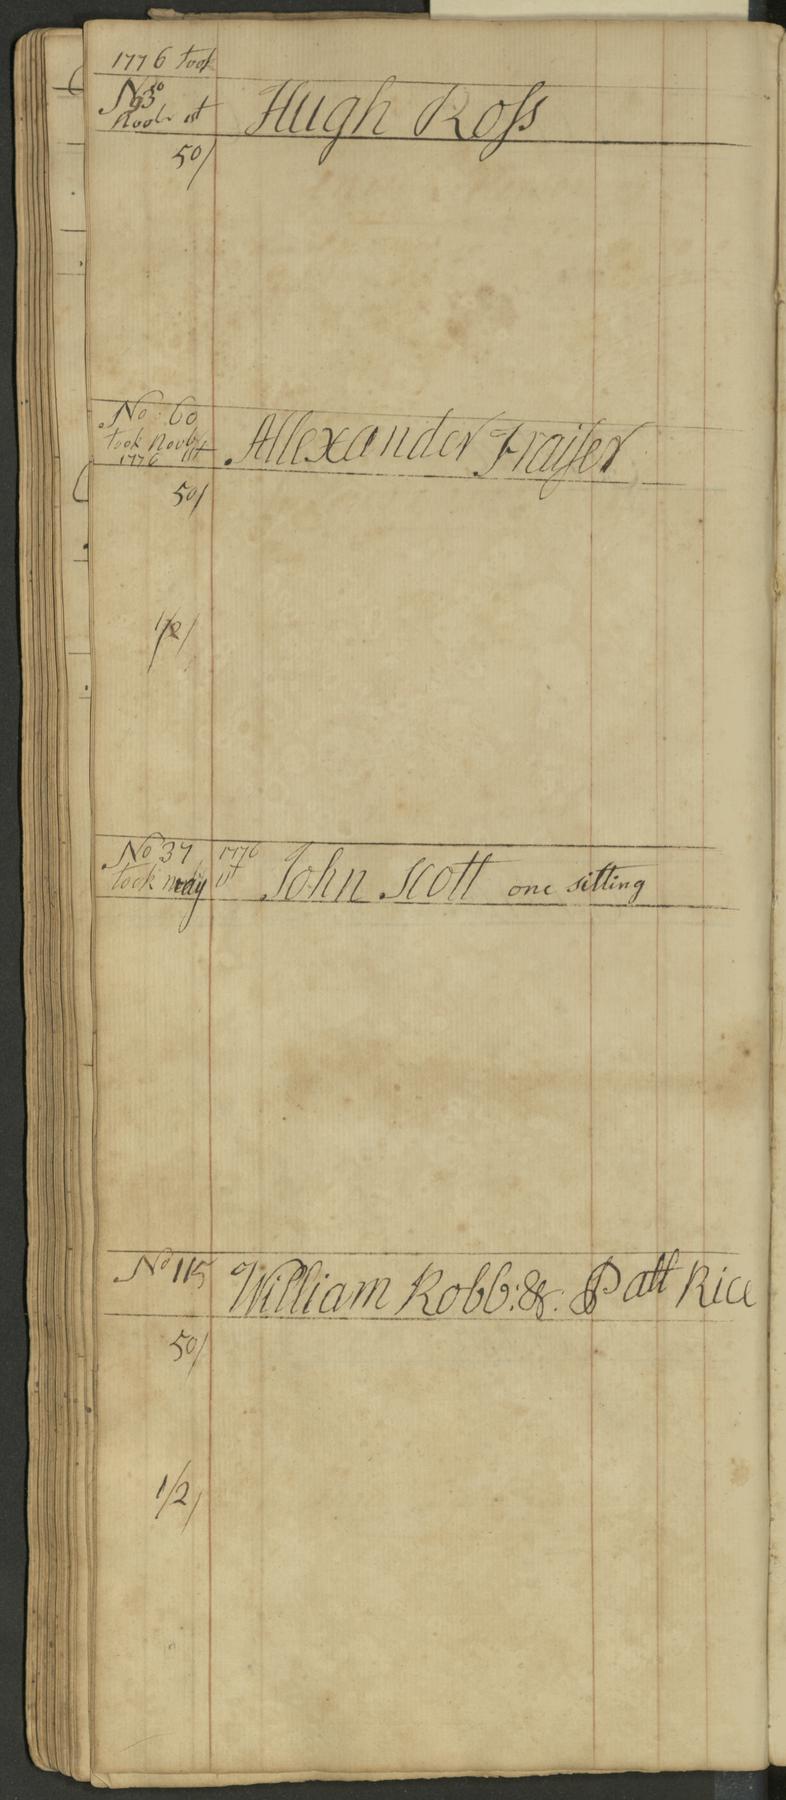 1776 took
No 
Hugh Ross
50/
No 60
took Novbr
1776 1st
Allexander Fraiser
50/
1/2/
No 37 1776
took may 1st
John Scott one sitting
No 115
William Robb: &: Patt Rice
50/
1/2/